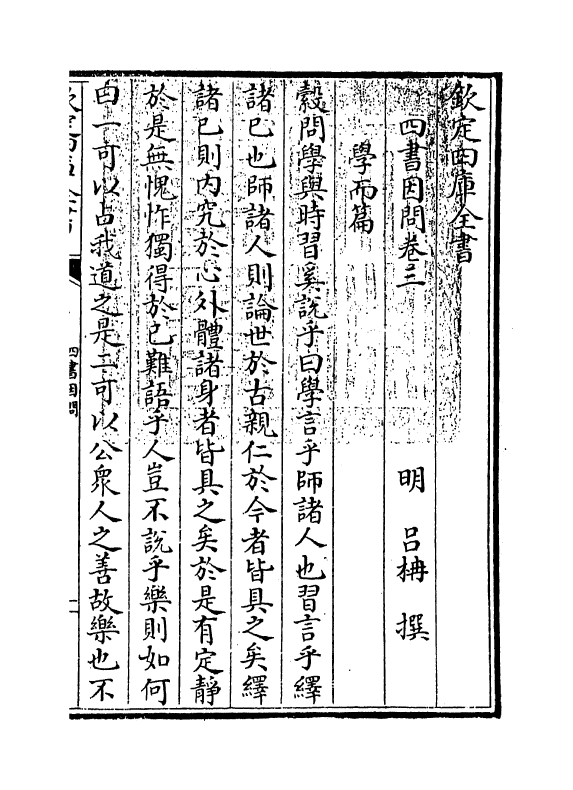 欽定四庫全書
四書因問卷三
明 呂柟 撰
學而篇
穀問學與時習奚說乎曰學言乎師諸人也習言乎繹
諸已也師諸人則論世於古親仁於今者皆具之矣繹
諸已則内究於心外體諸身者皆具之矣於是有定靜
於是無愧怍獨得於已難語乎人豈不說乎樂則如何
曰一可以占我道之是二可以公衆人之善故樂也不
四書因問